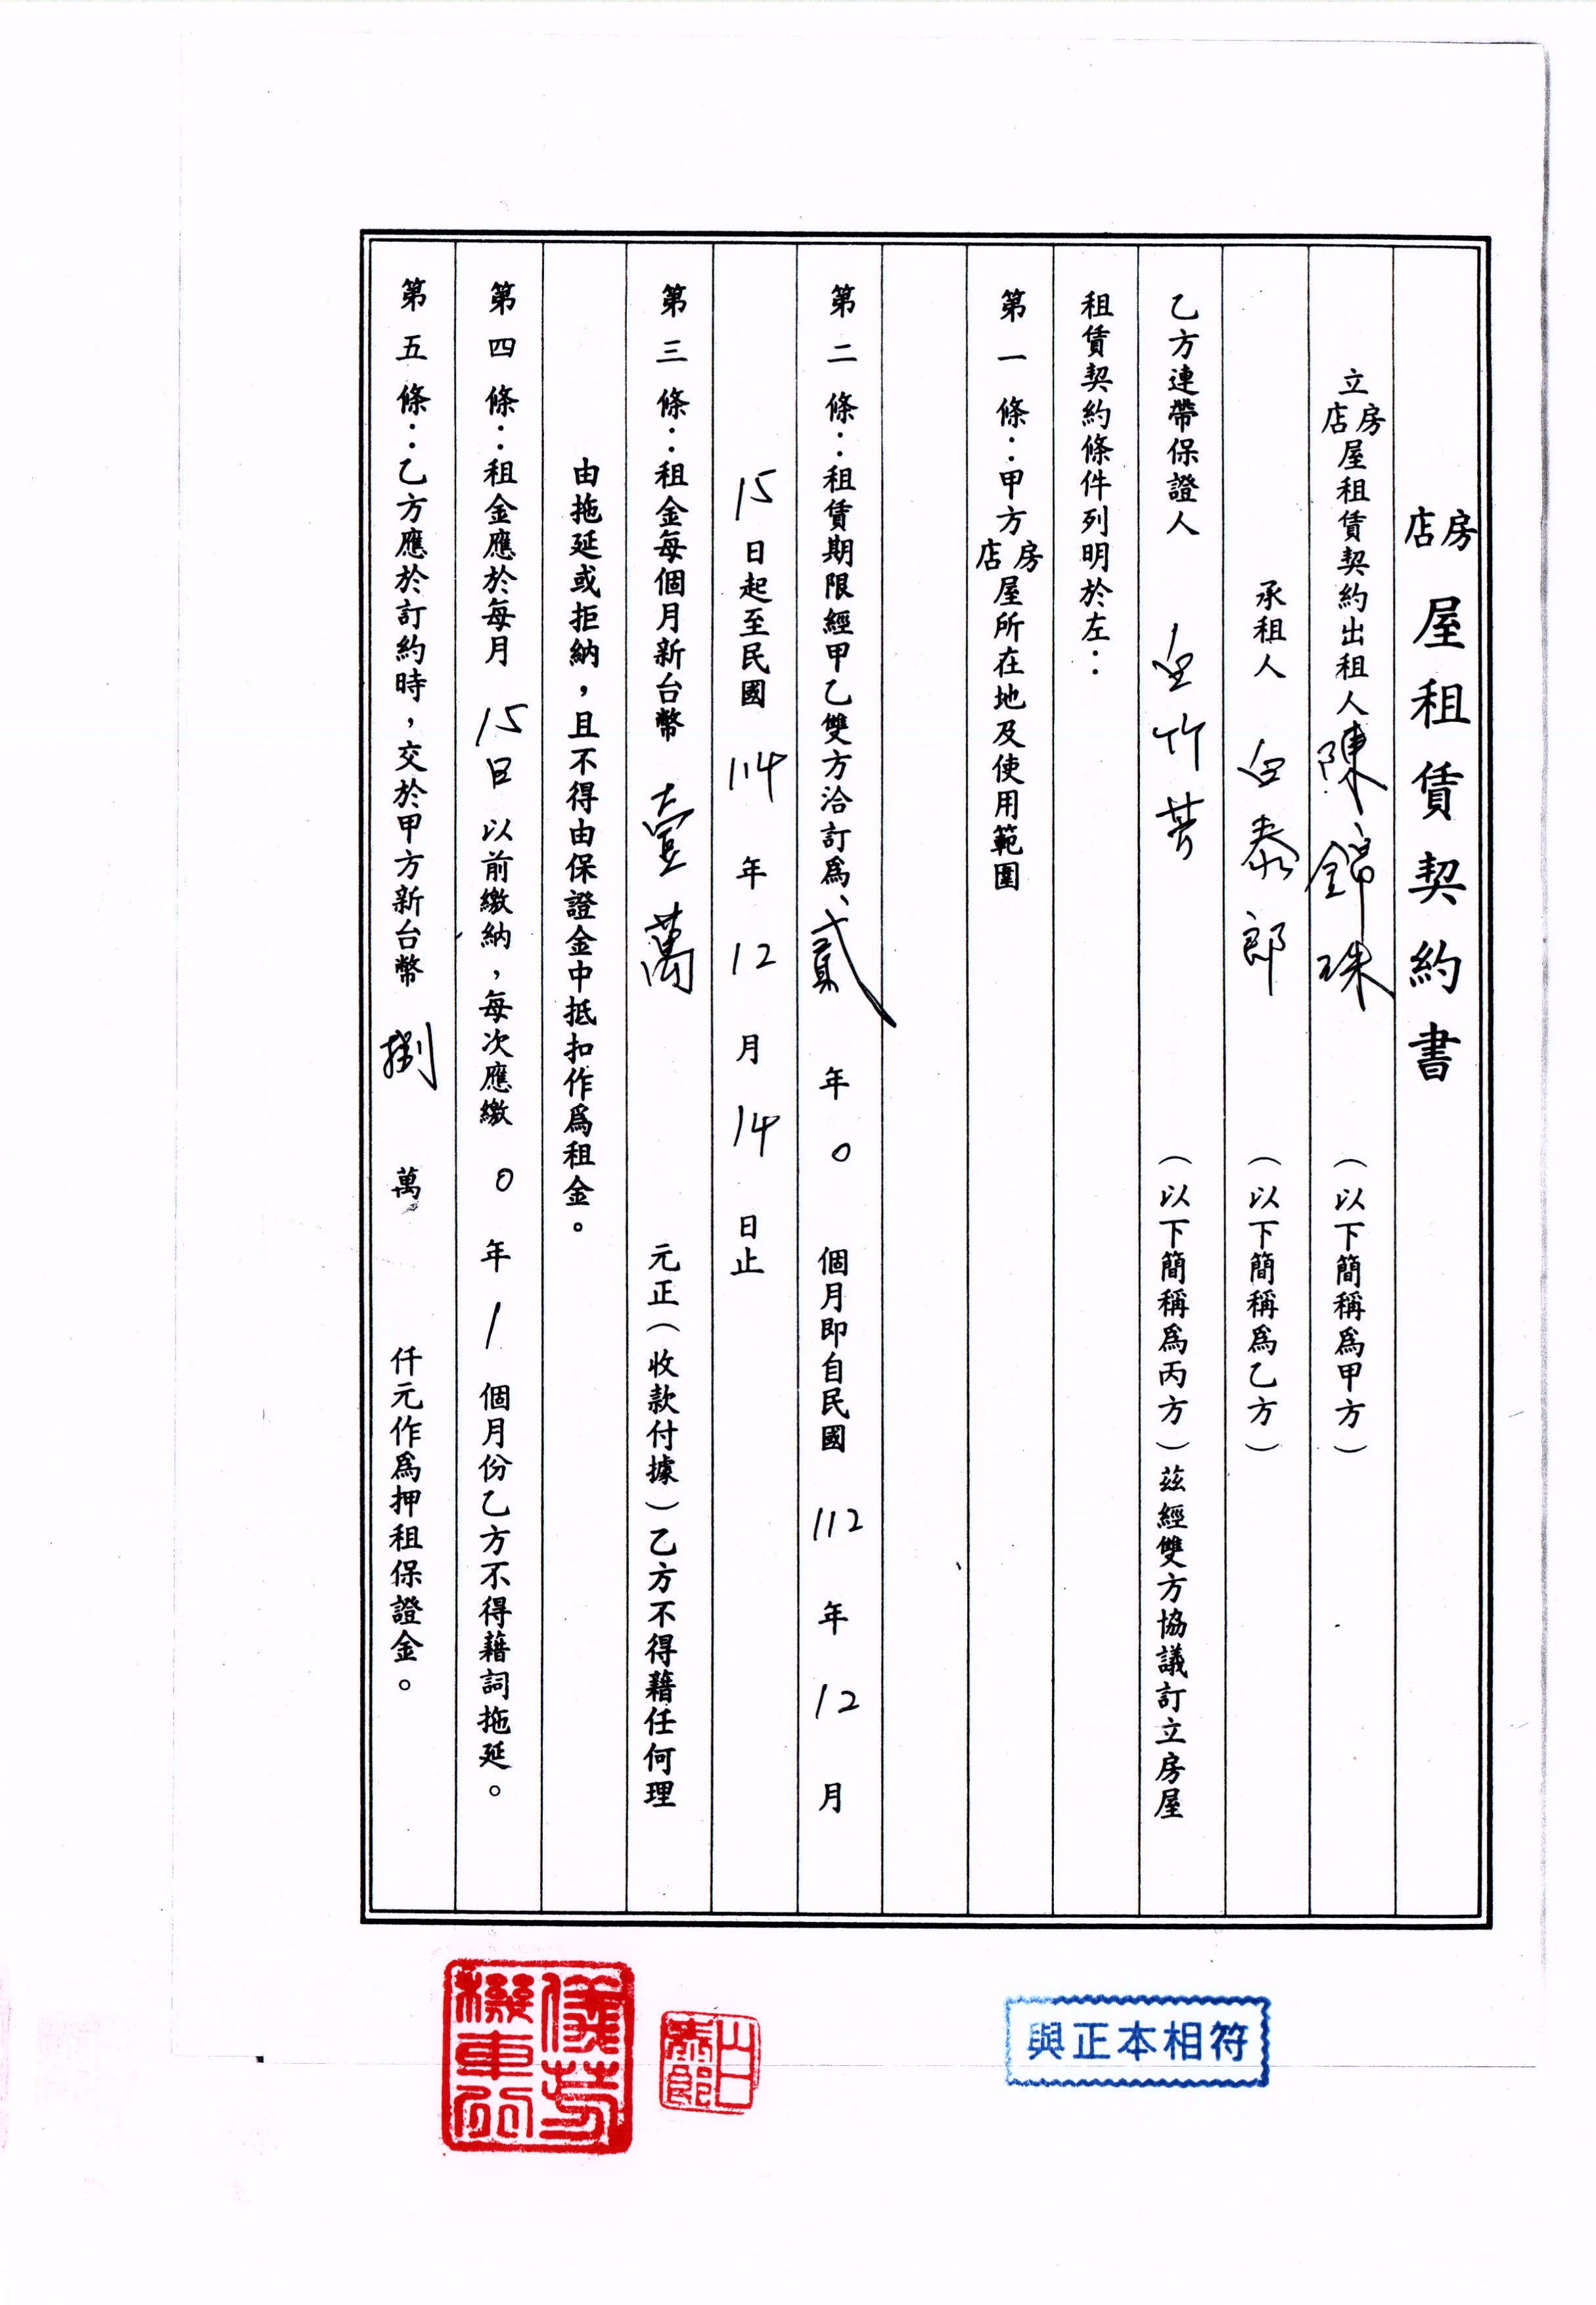 房店屋租賃契約書
立房店屋租賃契約出租人陳錦珠（以下簡稱為甲方）
承租人 白泰郎（以下簡稱為乙方）
乙方連帶保證人 竹芳（以下簡稱為丙方）茲經雙方協議訂立房屋
租賃契約條件列明於左：
第一條：甲方房店屋所在地及使用範圍
第二條：租賃期限經甲乙雙方洽訂為、貳 年 0 個月即自民國 112 年 12 月
15 日起至民國 114 年 12 月 14 日止
第三條：租金每個月新台幣 壹萬 元正（收款付據）乙方不得藉任何理
由拖延或拒納，且不得由保證金中抵扣作為租金。
第四條：租金應於每月 15日 以前繳納，每次應繳 0 年 1 個月份乙方不得藉詞拖延。
第五條：乙方應於訂約時，交於甲方新台幣 捌 萬 仟元作為押租保證金。
與正本相符
白泰郎
儀芳機車行